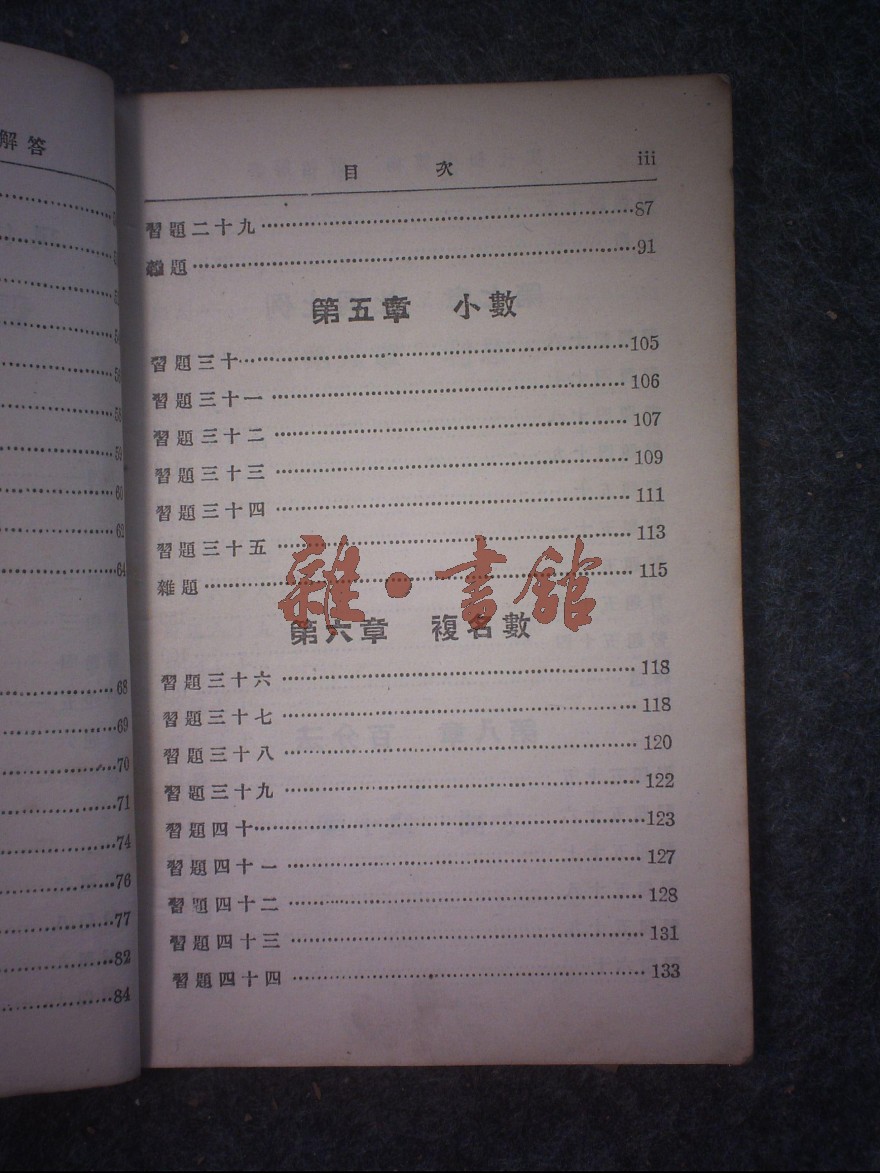 解答
54
56
58
59
60
62
64
68
69
70
71
74
76
77
82
84
目 次 iii
習題二十九……87
雜題……91
第五章 小數
習題三十……105
習題三十一……106
習題三十二……107
習題三十三……109
習題三十四……111
習題三十五……113
雜題……115
雜·書館
第六章 複名數
習題三十六……118
習題三十七……118
習題三十八……120
習題三十九……122
習題四十……123
習題四十一……127
習題四十二……128
習題四十三……131
習題四十四……133